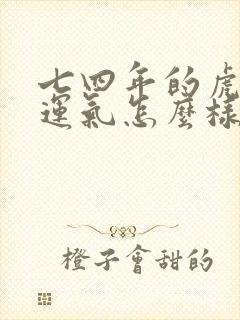 七四年的虎
運氣怎麼樣
橙子會甜的